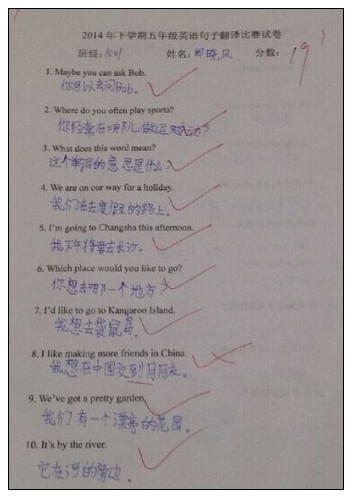 2014年下学期五年级英语句子翻译比赛试卷
班级: 姓名: 郑晓风 分数: 19
1. Maybe you can ask Bob.
你可以去问Bob。
2. Where do you often play sports?
你经常在哪儿做运动?
3. What does this word mean?
这个单词的意思是什么?
4. We are on our way for a holiday.
我们在去度假的路上。
5. I'm going to Changsha this afternoon.
我下午将要去长沙。
6. Which place would you like to go?
你想去哪一个地方?
7. I'd like to go to Kangaroo Island.
我想去袋鼠岛。
8. I like making more friends in China.
我想在中国交到朋友。
9. We've got a pretty garden.
我们有一个漂亮的花园。
10. It's by the river.
它在河的旁边。